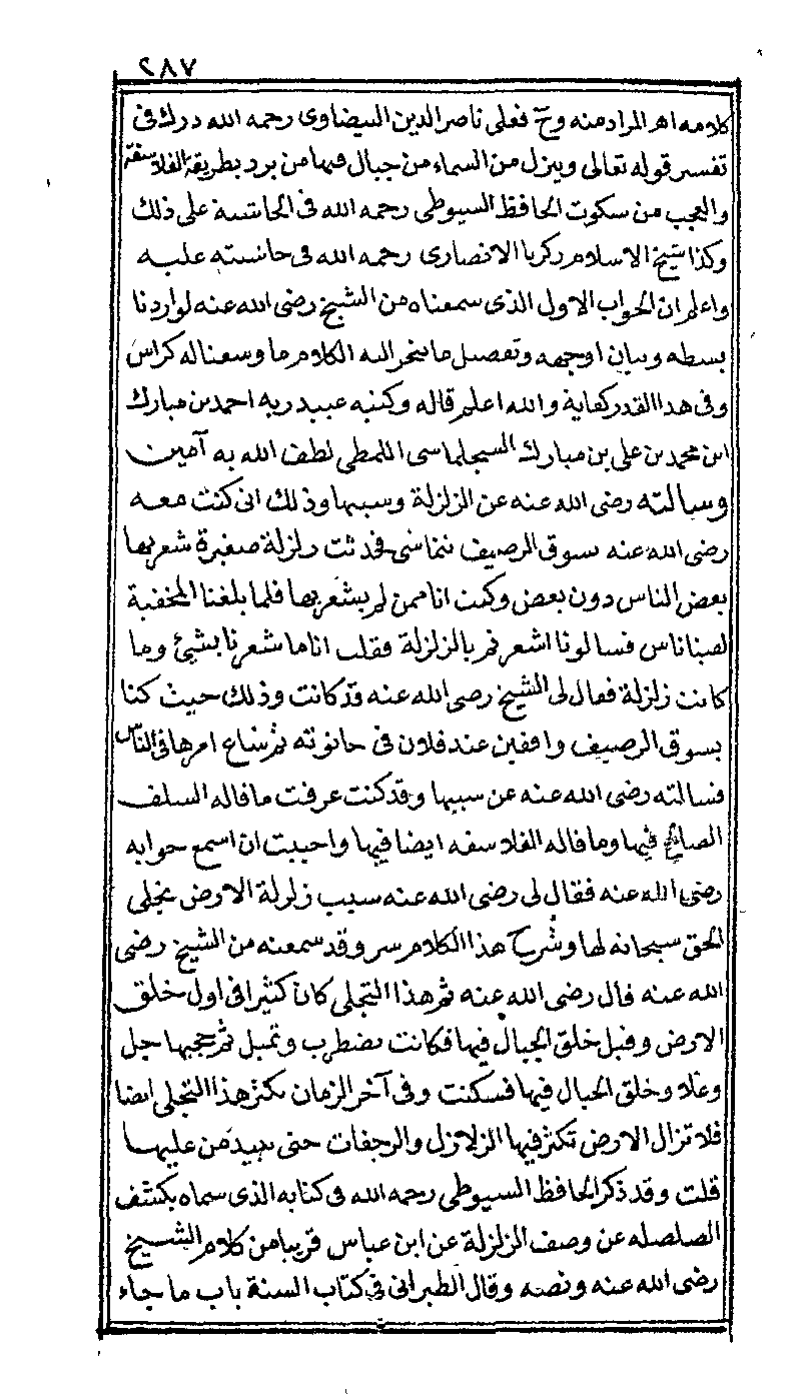 ٢٨٧
كلامه اهـ المراد منه وح فعلى ناصر الدين البيضاوى رحمه الله درك فى
تفسير قوله تعالى وينزل من السماء من جبال فيها من برد بطريقة الفلاسفة
والعجب من سكوت الحافظ السيوطى رحمه الله فى الحاشية على ذلك
وكذا شيخ الاسلام زكريا الانصارى رحمه الله فى حاشيته عليه
واعلم ان الجواب الاول الذى سمعناه من الشيخ رضى الله عنه لو اردنا
بسطه وبيان اوجهه وتفصيل ما ينجر اليه الكلام ما وسعنا له كراس
وفى هذا القدر كفاية والله اعلم قاله وكتبه عبيد ربه احمد بن مبارك
ابن محمد بن على بن مبارك السجلماسى اللمطى لطف الله به آمين
وسالته رضى الله عنه عن الزلزلة وسببها وذلك انى كنت معه
رضى الله عنه بسوق الرصيف نتماشى فحدثت زلزلة صغيرة شعر بها
بعض الناس دون بعض وكنت انا ممن لم يشعر بها فلما بلغنا المخفية
لقينا ناس فسالونا اشعرتم بالزلزلة فقلت انا ما شعرنا بشيئ وما
كانت زلزلة فقال لى الشيخ رضى الله عنه قد كانت وذلك حيث كنا
بسوق الرصيف واقفين عند فلان فى حانوته ثم شاع امرها فى الناس
فسالته رضى الله عنه عن سببها وقد كنت عرفت ما قاله السلف
الصالح فيها وما قاله الفلاسفه ايضا فيها واحببت ان اسمع جوابه
رضى الله عنه فقال لى رضى الله عنه سبب زلزلة الارض تجلى
الحق سبحانه لها وشرح هذا الكلام سر وقد سمعته من الشيخ رضى
الله عنه قال رضى الله عنه ثم هذا التجلى كان كثيرا فى اول خلق
الارض وقبل خلق الجبال فيها فكانت تضطرب وتميل ثم حجبها جل
وعلا وخلق الجبال فيها فسكنت وفى آخر الزمان يكثر هذا التجلى ايضا
فلا تزال الارض تكثر فيها الزلازل والرجفات حتى يبيد من عليها
قلت وقد ذكر الحافظ السيوطى رحمه الله فى كتابه الذى سماه بكشف
الصلصله عن وصف الزلزلة عن ابن عباس قريبا من كلام الشيخ
رضى الله عنه ونصه وقال الطبرانى فى كتاب السنة باب ما جاء